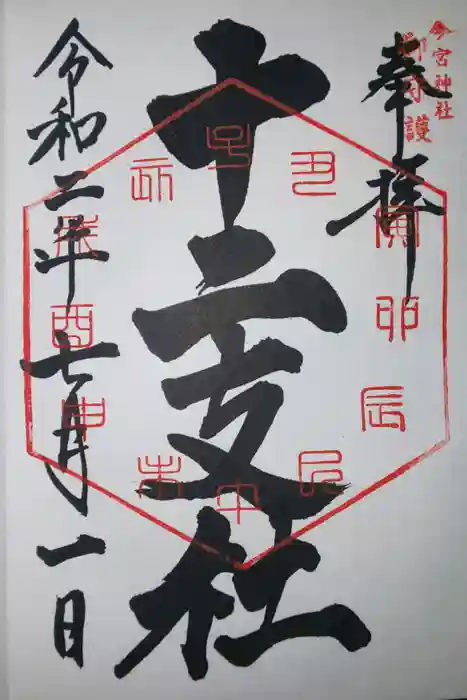 今宮神社
御守護
奉拝
十二支社
子
丑
寅
卯
辰
巳
午
未
申
酉
戌
亥
令和二年七月一日